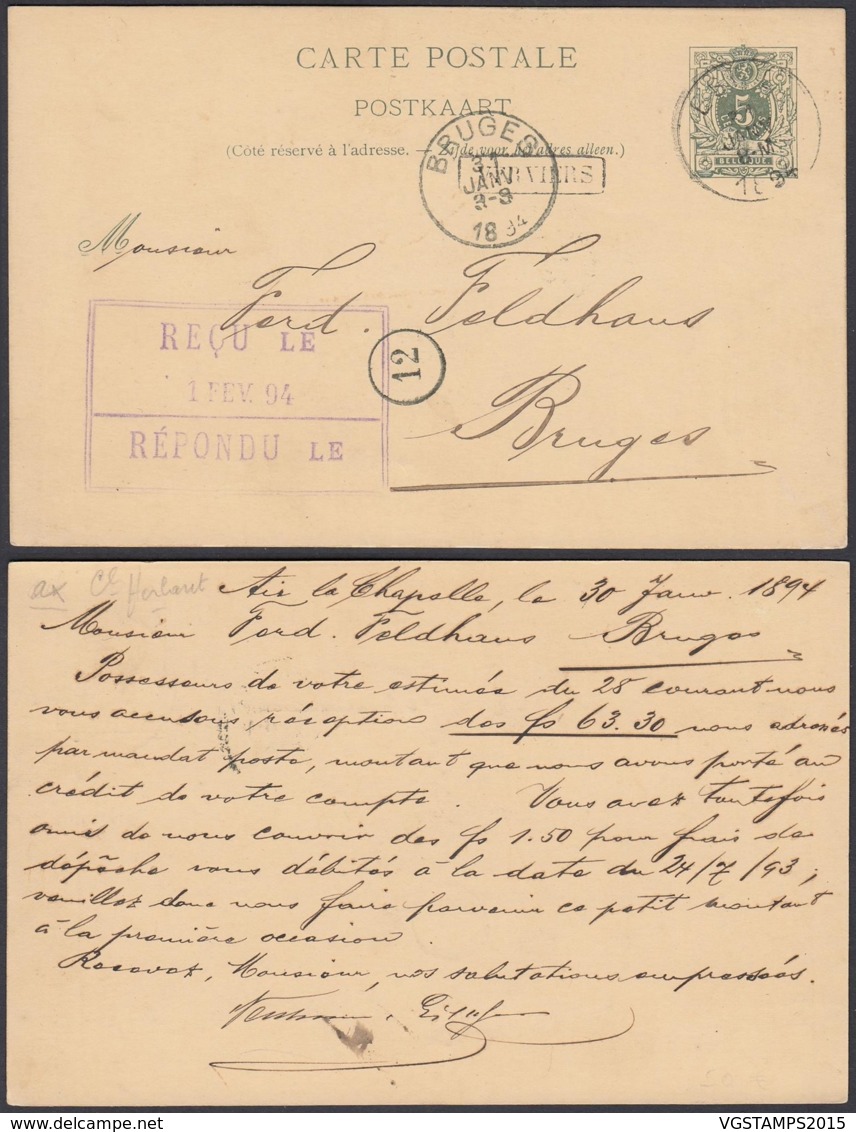 CARTE POSTALE
POSTKAART
(Côté réservé à l'adresse. — Zijde voor het adres alleen.)
5
BELGIQUE
BRUGES
31
JANV
3-8
1894
VERVIERS
Monsieur
Ferd. Feldhaus
Bruges
REÇU LE
1 FEV. 94
RÉPONDU LE
12
Aix la Chapelle, le 30 Janv. 1894
Monsieur Ferd. Feldhaus Bruges
Possesseurs de votre estimée du 28 courant nous
vous accusons réception des fs 63.30 nous adressés
par mandat poste, montant que nous avons porté au
crédit de votre compte. Vous avez toutefois
omis de nous couvrir des fs 1.50 pour frais de
dépêche vous débités à la date du 24/7/93;
veuillez donc nous faire parvenir ce petit montant
à la première occasion.
Recevez, Monsieur, nos salutations empressées.
VGSTAMPS2015